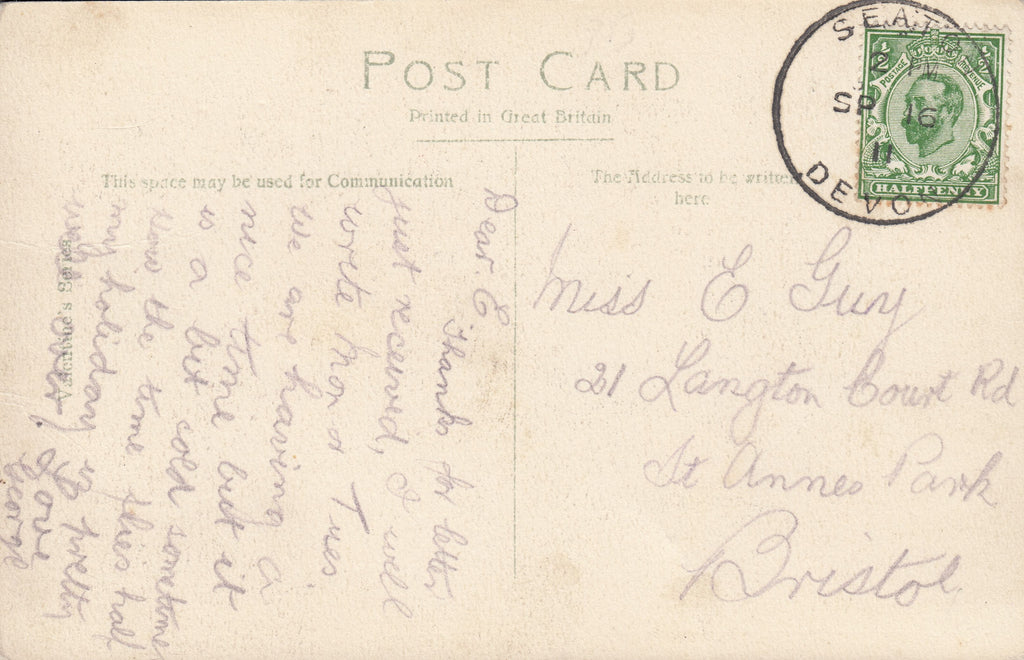 POST CARD
Printed in Great Britain
This space may be used for Communication
The Address to be written
here
SEATON
2 PM
SP 16
11
DEVO
POSTAGE REVENUE
HALFPENNY
Valentine's Series
Dear E
Thanks for letter
just received, I will
write Mon or Tues.
We are having a
nice time but it
is a bit cold sometime
this time this
my holiday is pretty
over
Love
George
Miss E Guy
21 Langton Court Rd
St Annes Park
Bristol.